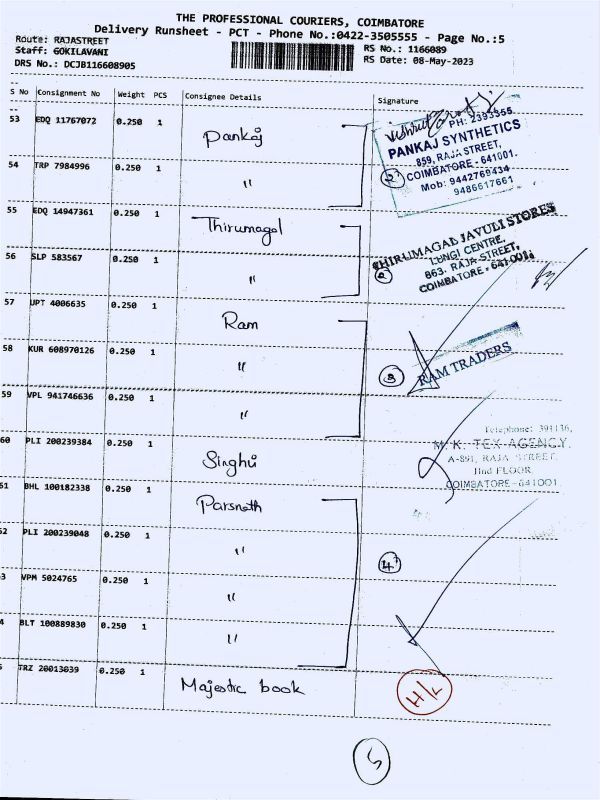 THE PROFESSIONAL COURIERS, COIMBATORE
Delivery Runsheet - PCT - Phone No.:0422-3505555 - Page No.:5
Route: RAJASTREET
Staff: GOKILAVANI
DRS No.: DCJB116608905
RS No.: 1166089
RS Date: 08-May-2023
S No Consignment No Weight PCS Consignee Details Signature
53 EDQ 11767072 0.250 1 Pankaj
PH: 2393355
PANKAJ SYNTHETICS
859, RAJA STREET,
COIMBATORE - 641001.
Mob: 9442769434
9486617661
2
54 TRP 7984996 0.250 1 "
55 EDQ 14947361 0.250 1 Thirumagal
THIRUMAGAL JAVULI STORES
LUNGI CENTRE,
863, RAJA STREET,
COIMBATORE - 641001.
2
56 SLP 583567 0.250 1 "
57 UPT 4006635 1 Ram
58 KUR 608970126 0.250 1 "
3 RAM TRADERS
59 VPL 941746636 0.250 1 "
60 PLI 200239384 0.250 1 Singhvi
Telephone: 391136,
M. K. TEX AGENCY.
A-891, RAJA STREET,
IInd FLOOR,
COIMBATORE - 641001
51 BHL 100182338 0.250 1 Parsnath
2 PLI 200239048 0.250 1 "
4
3 VPM 5024765 0.250 1 "
4 BLT 100889830 0.250 1 "
5 TRZ 20013039 0.250 1 Majestic book
H/L
5